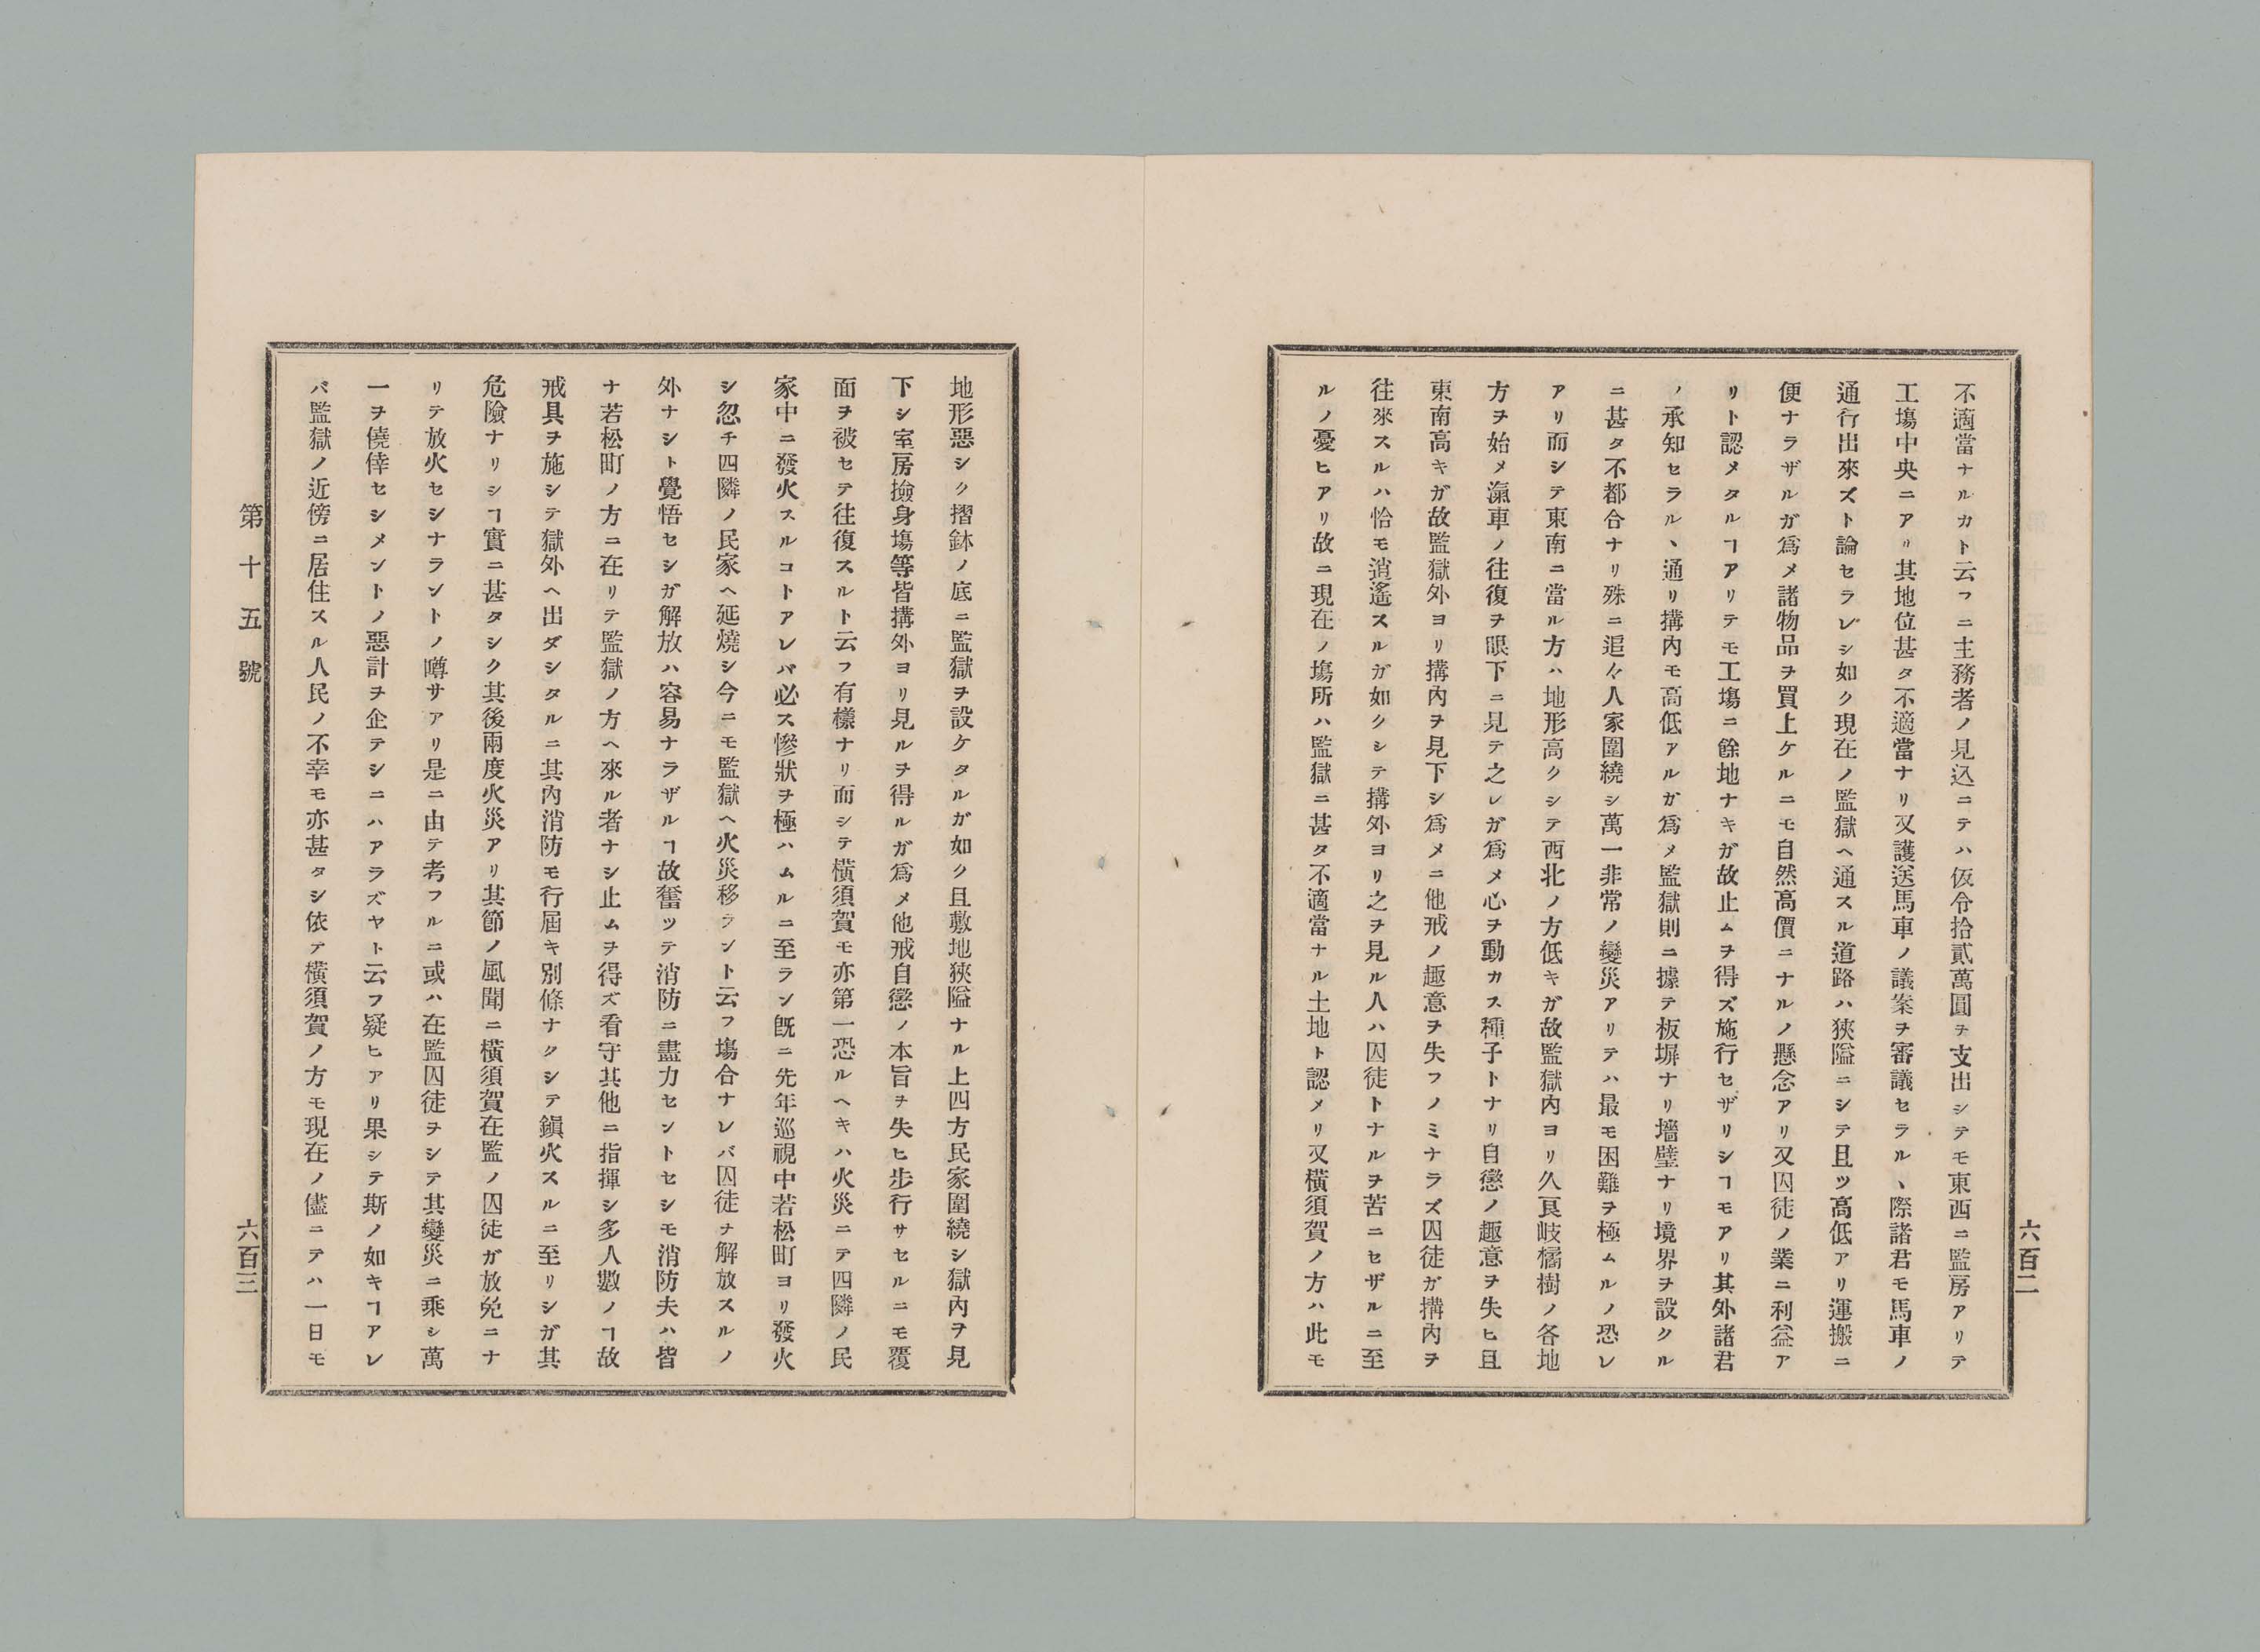 六百二
不適當ナルカト云フニ主務者ノ見込ニテハ仮令拾貳萬圓ヲ支出シテモ東西ニ監房アリテ
工塲中央ニアリ其地位甚タ不適當ナリ又護送馬車ノ議案ヲ審議セラルヽ際諸君モ馬車ノ
通行出來ズト論セラレシ如ク現在ノ監獄ヘ通スル道路ハ狹隘ニシテ且ツ高低アリ運搬ニ
便ナラザルガ爲メ諸物品ヲ買上ケルニモ自然高價ニナルノ懸念アリ又囚徒ノ業ニ利益ア
リト認メタルヿアリテモ工塲ニ餘地ナキガ故止ムヲ得ズ施行セザリシヿモアリ其外諸君
ノ承知セラルヽ通リ搆内モ高低アルガ爲メ監獄則ニ據テ板塀ナリ墻璧ナリ境界ヲ設クル
ニ甚タ不都合ナリ殊ニ追々人家圍繞シ萬一非常ノ變災アリテハ最モ困難ヲ極ムルノ恐レ
アリ而シテ東南ニ當ル方ハ地形高クシテ西北ノ方低キガ故監獄内ヨリ久良岐橘樹ノ各地
方ヲ始メ滊車ノ往復ヲ眼下ニ見テ之レガ爲メ心ヲ動カス種子トナリ自懲ノ趣意ヲ失ヒ且
東南高キガ故監獄外ヨリ搆内ヲ見下シ爲メニ他戒ノ趣意ヲ失フノミナラズ囚徒ガ搆内ヲ
往來スルハ恰モ逍遙スルガ如クシテ搆外ヨリ之ヲ見ル人ハ囚徒トナルヲ苦ニセザルニ至
ルノ憂ヒアリ故ニ現在ノ塲所ハ監獄ニ甚タ不適當ナル土地ト認メリ又橫須賀ノ方ハ此モ
地形惡シク摺鉢ノ底ニ監獄ヲ設ケタルガ如ク且敷地狹隘ナル上四方民家圍繞シ獄内ヲ見
下シ室房撿身塲等皆搆外ヨリ見ルヲ得ルガ爲メ他戒自懲ノ本旨ヲ失ヒ步行サセルニモ覆
面ヲ被セテ往復スルト云フ有樣ナリ而シテ橫須賀モ亦第一恐ルヘキハ火災ニテ四隣ノ民
家中ニ發火スルコトアレバ必ス慘狀ヲ極ハムルニ至ラン旣ニ先年巡視中若松町ヨリ發火
シ忽チ四隣ノ民家ヘ延燒シ今ニモ監獄ヘ火災移ラント云フ塲合ナレバ囚徒ヲ解放スルノ
外ナシト覺悟セシガ解放ハ容易ナラザルヿ故奮ツテ消防ニ盡力セントセシモ消防夫ハ皆
ナ若松町ノ方ニ在リテ監獄ノ方ヘ來ル者ナシ止ムヲ得ズ看守其他ニ指揮シ多人數ノヿ故
戒具ヲ施シテ獄外ヘ出ダシタルニ其内消防モ行屆キ別條ナクシテ鎭火スルニ至リシガ其
危險ナリシヿ實ニ甚タシク其後兩度火災アリ其節ノ風聞ニ橫須賀在監ノ囚徒ガ放免ニナ
リテ放火セシナラントノ噂サアリ是ニ由テ考フルニ或ハ在監囚徒ヲシテ其變災ニ乘シ萬
一ヲ僥倖セシメントノ惡計ヲ企テシニハアラズヤト云フ疑ヒアリ果シテ斯ノ如キヿアレ
バ監獄ノ近傍ニ居住スル人民ノ不幸モ亦甚タシ依テ橫須賀ノ方モ現在ノ儘ニテハ一日モ
第十五號
六百三